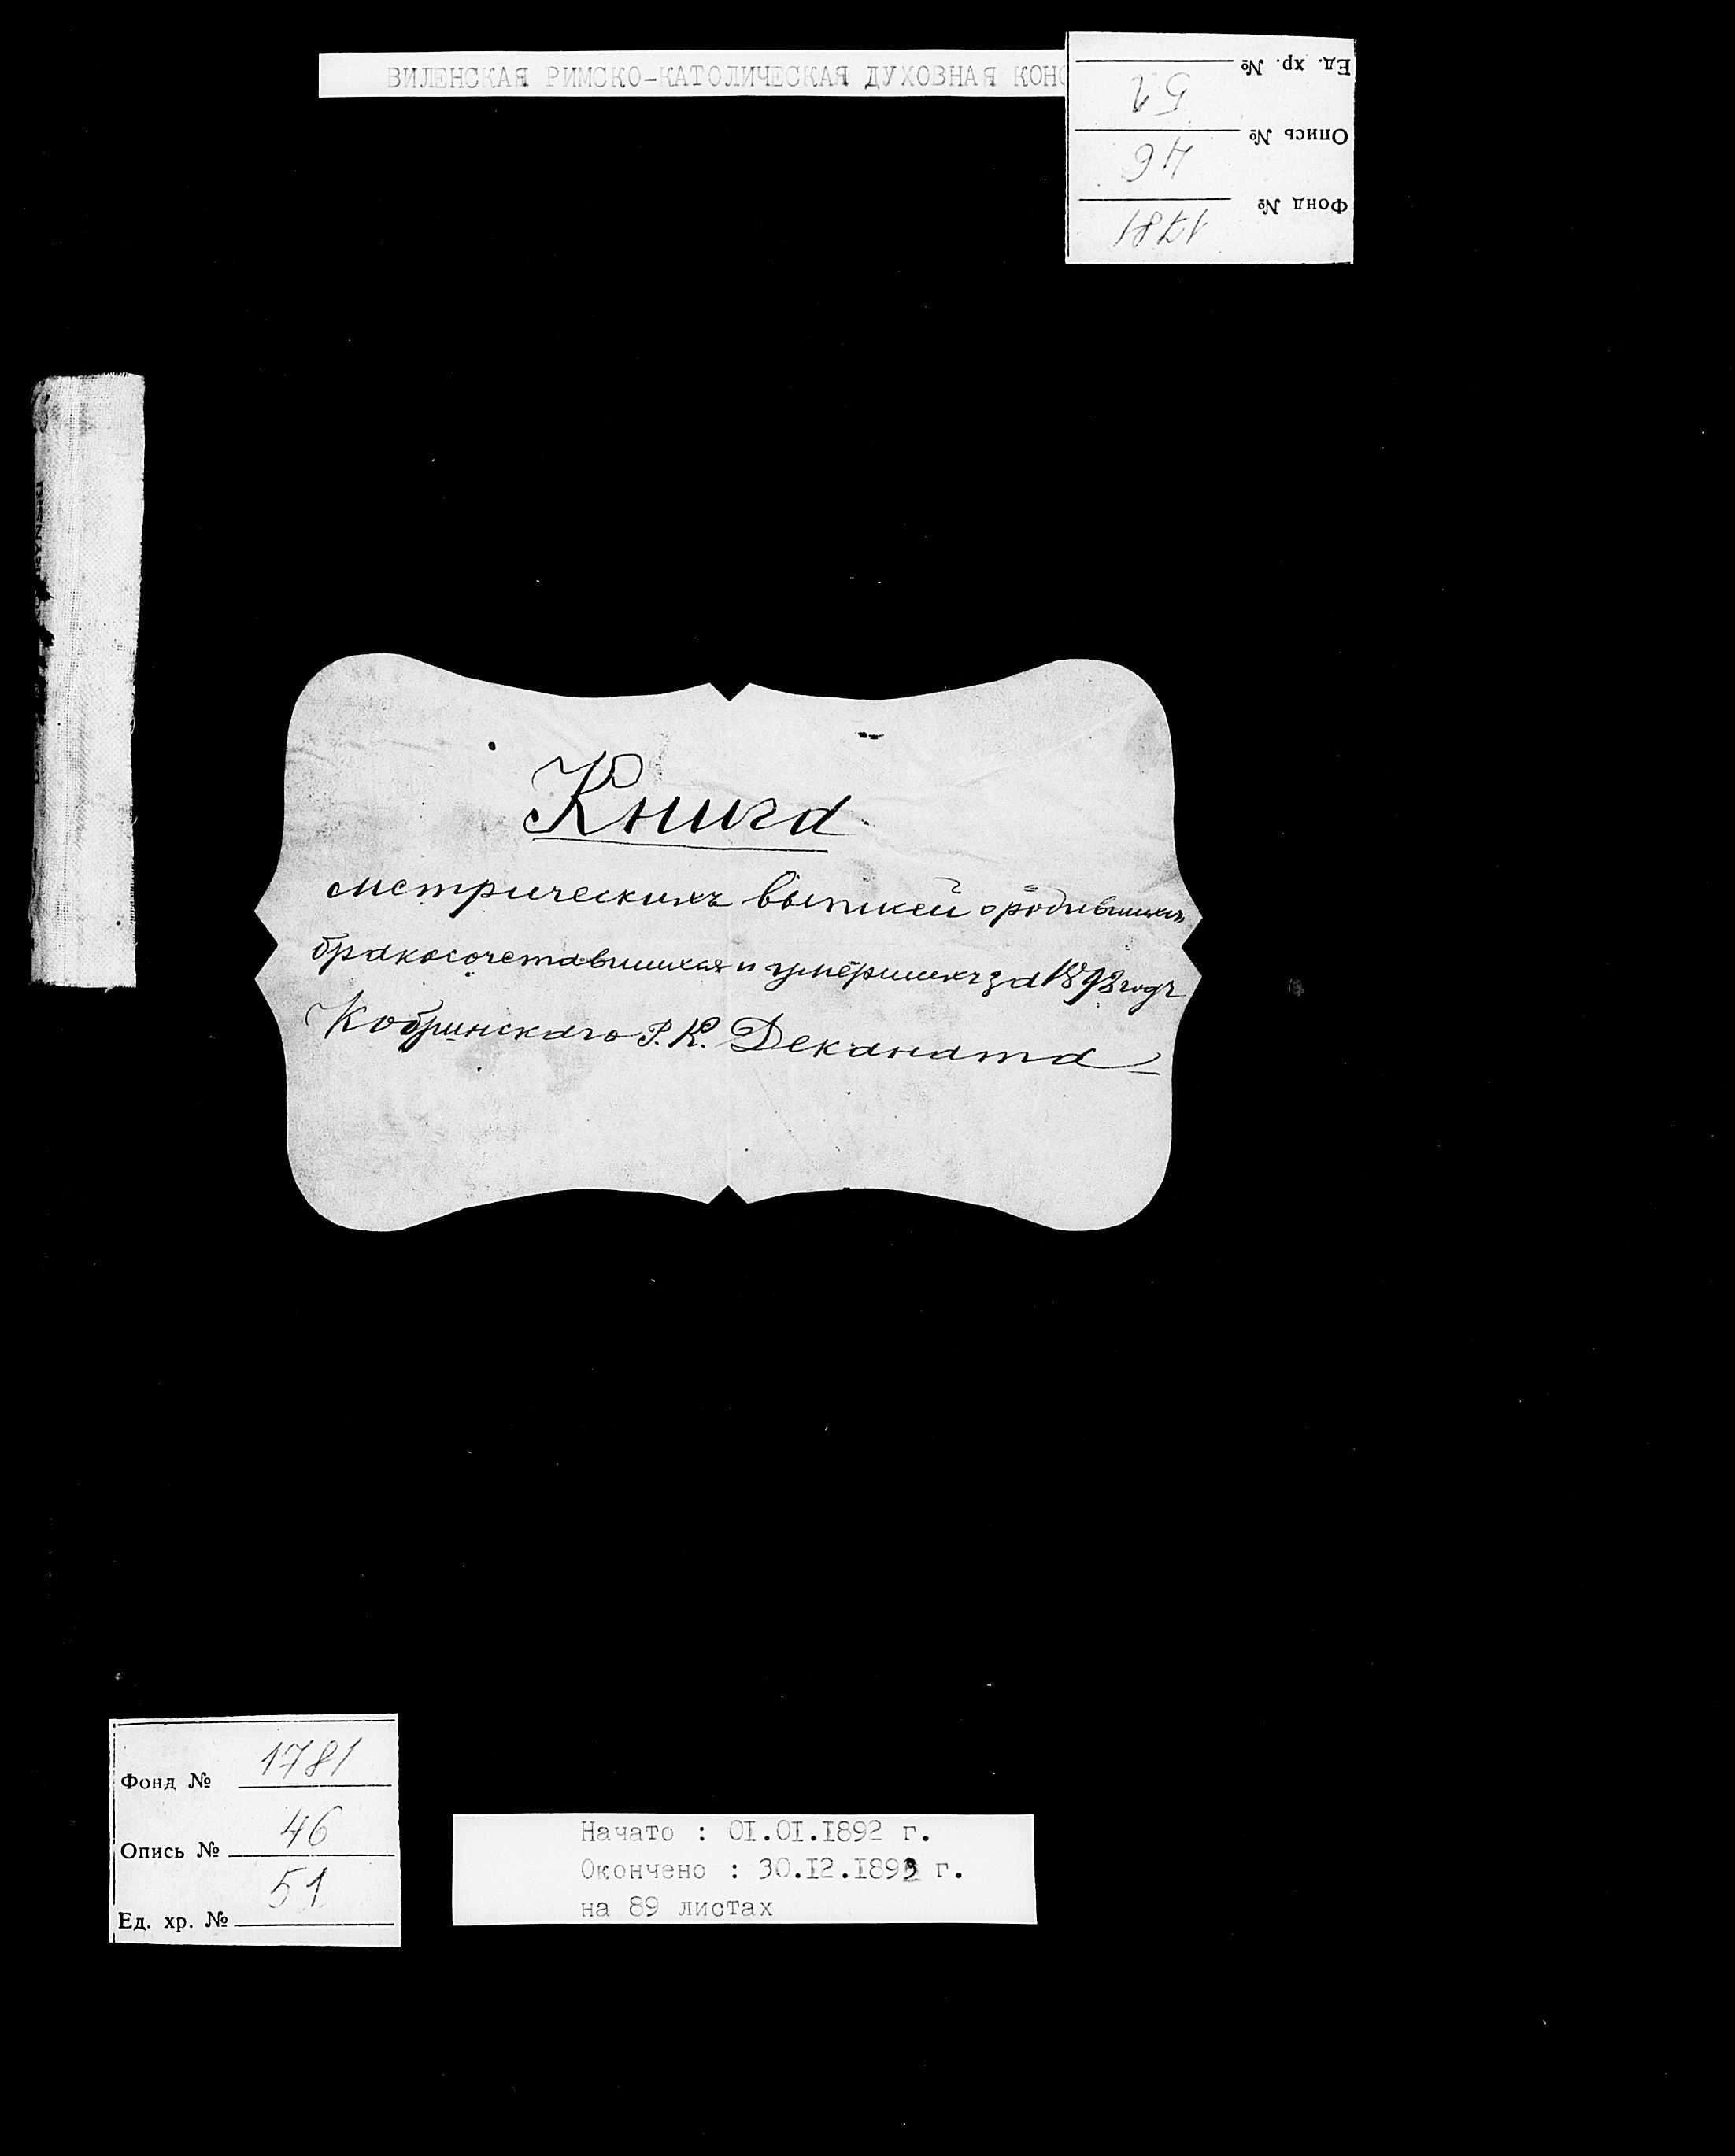 ВИЛЕНСКАЯ РИМСКО-КАТОЛИЧЕСКАЯ ДУХОВНАЯ КОНС
Ед. хр. № 51
Опись № 46
Фонд № 1781
Книга
метрическихъ выписей о родившихся,
бракосочетавшихся и умершихъ за 1892 годъ
Кобринскаго Р. К. Деканата
Фонд № 1781
Опись № 46
Ед. хр. № 51
Начато : 01.01.1892 г.
Окончено : 30.12.1893 г.
на 89 листах